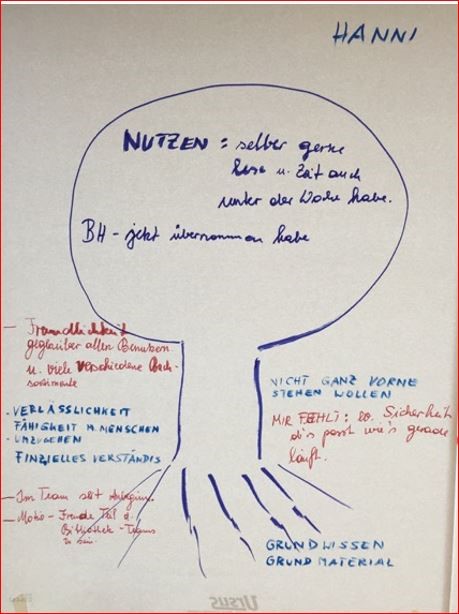 HANNI
NUTZEN = selber gerne
lese u. Zeit auch
unter der Woche habe.
BH - jetzt übernommen habe
- Freundlichkeit
gegenüber allen Benutzern
u. viele verschiedene Buch-
sortimente
- VERLÄSSLICHKEIT
FÄHIGKEIT M. MENSCHEN
- UMZUGEHEN
FINZIELLES VERSTÄNDIS
NICHT GANZ VORNE
STEHEN WOLLEN
MIR FEHLT: Sicherheit
passt wie's gerade
läuft.
- Im Team seit
- Motiv - Freude Teil d.
Bibliothek - Teams
zu sein.
GRUNDWISSEN
GRUND MATERIAL
Ursus